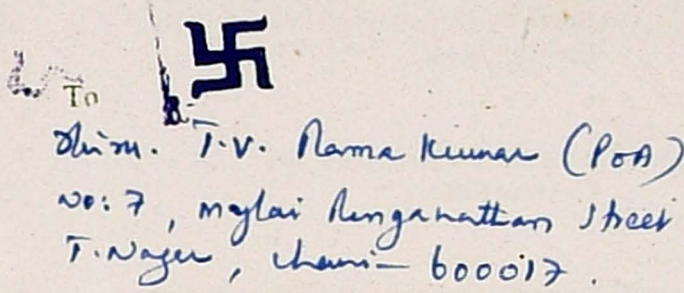 To
Thiru. T.V. Rama Kumar (POA)
No: 7, Mylai Ranganathan Street
T. Nagar, Chennai - 600017.